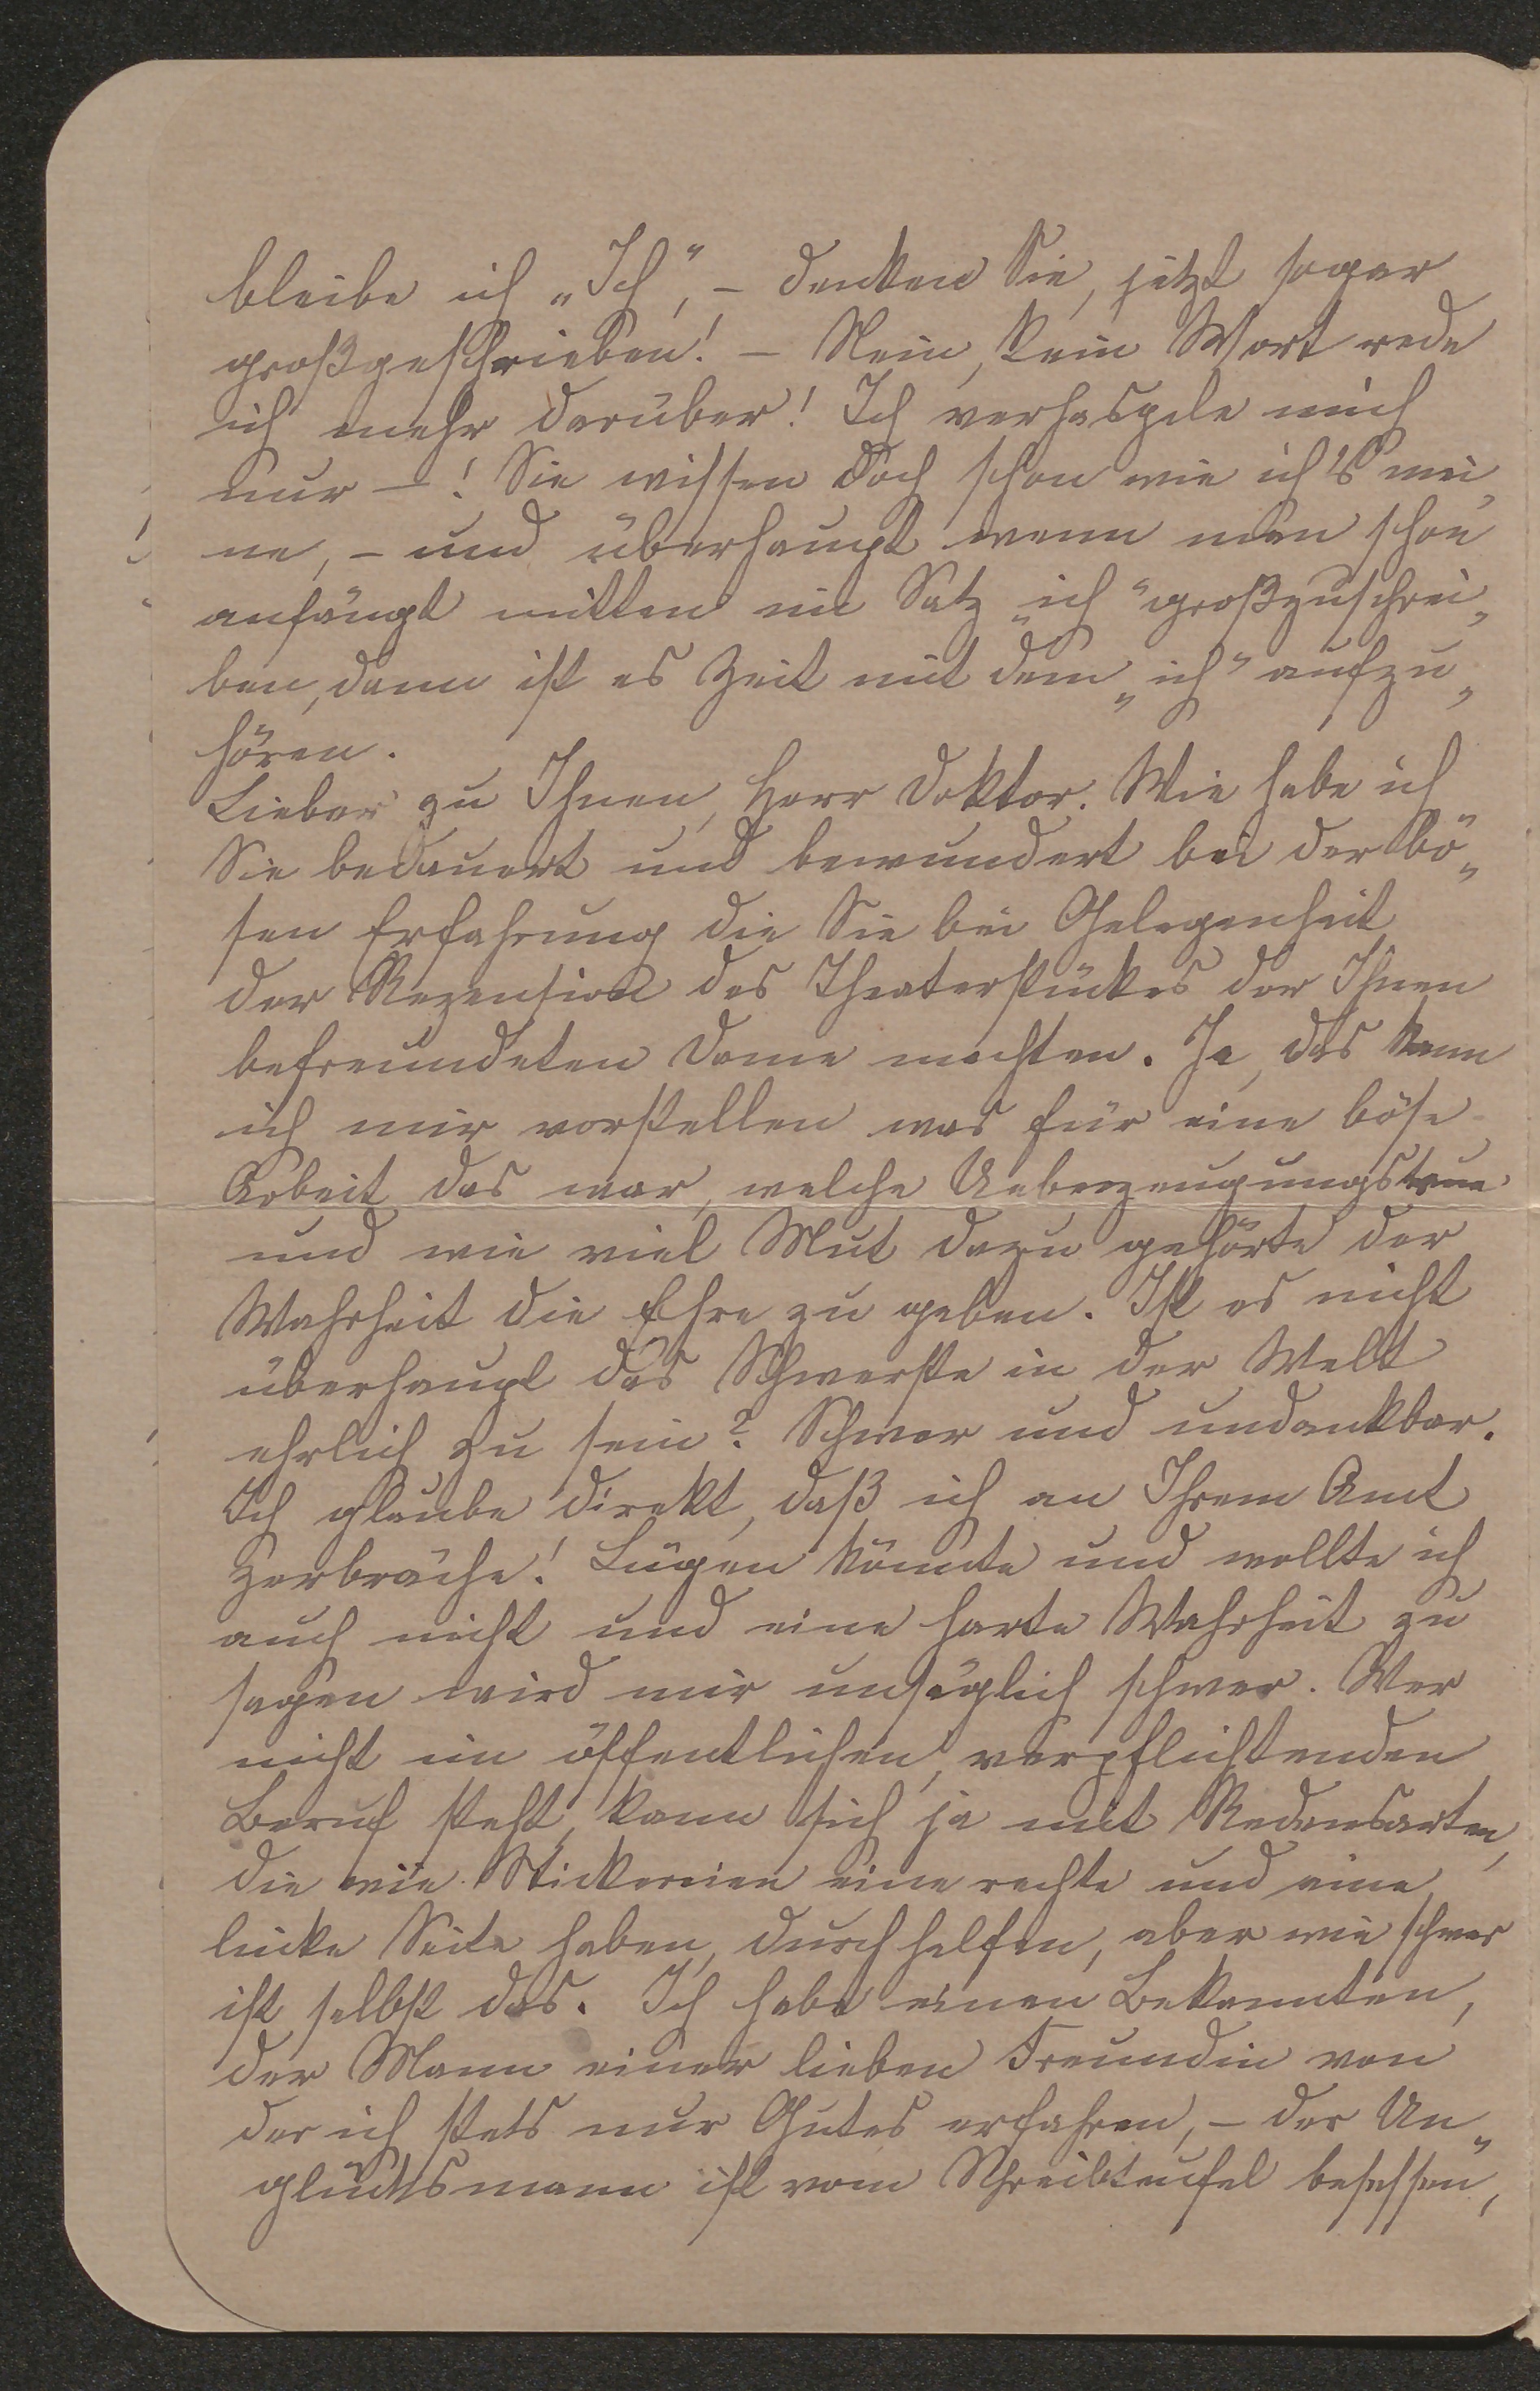 bleibe ich „Ich“, – denken Sie, jetzt sogar
großgeschrieben! – Nein, kein Wort rede
ich mehr darüber! Ich verhasple mich
nur – ! Sie wissen doch schon wie ich's mei„
ne, – und überhaupt wenn man schon
anfängt mitten im Satz „ich“ großzuschrei„
ben, dann ist es Zeit mit dem „ich“ aufzu„
hören.
Lieber zu Ihnen, Herr Doktor. Wie habe ich
Sie bedauert und bewundert bei der bö„
sen Erfahrung die Sie bei Gelegenheit
der Rezension des Theaterstückes der Ihnen
befreundeten Dame machten. Ja, das kann
ich mir vorstellen was für eine böse
Arbeit das war, welche Ueberzeugungstreue
und wie viel Mut dazu gehörte der
Wahrheit die Ehre zu geben. Ist es nicht
überhaupt das Schwerste in der Welt
ehrlich zu sein? Schwer und undankbar.
Ich glaube direkt, daß ich an Ihrem Amt
zerbräche! Lügen könnte und wollte ich
auch nicht und eine harte Wahrheit zu
sagen wird mir unsäglich schwer. Wer
nicht im öffentlichen, verpflichtenden
Beruf steht, kann sich ja mit Redensarten,
die wie Stickereien eine rechte und eine
linke Seite haben, durchhelfen, aber wie schwer
ist selbst das. Ich habe einen Bekannten,
der Mann einer lieben Freundin von
der ich stets nur Gutes erfahren, – der Un„
glücksmann ist vom Schreibteufel besessen,